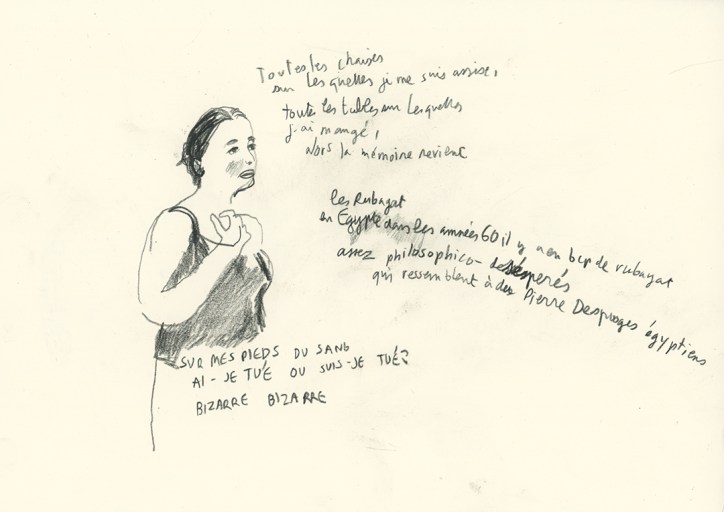 Toutes les chaises
sur lesquelles je me suis assise,
toutes les tables sur lesquelles
j'ai mangé,
Alors la mémoire revient
les Rubayat
en Egypte dans les années 60 il y a eu bcp de rubayat
assez philosophico-désespérés
qui ressemblent à des Pierre Desproges égyptiens
SUR MES PIEDS DU SANG
AI-JE TUÉ OU SUIS-JE TUÉ?
BIZARRE BIZARRE